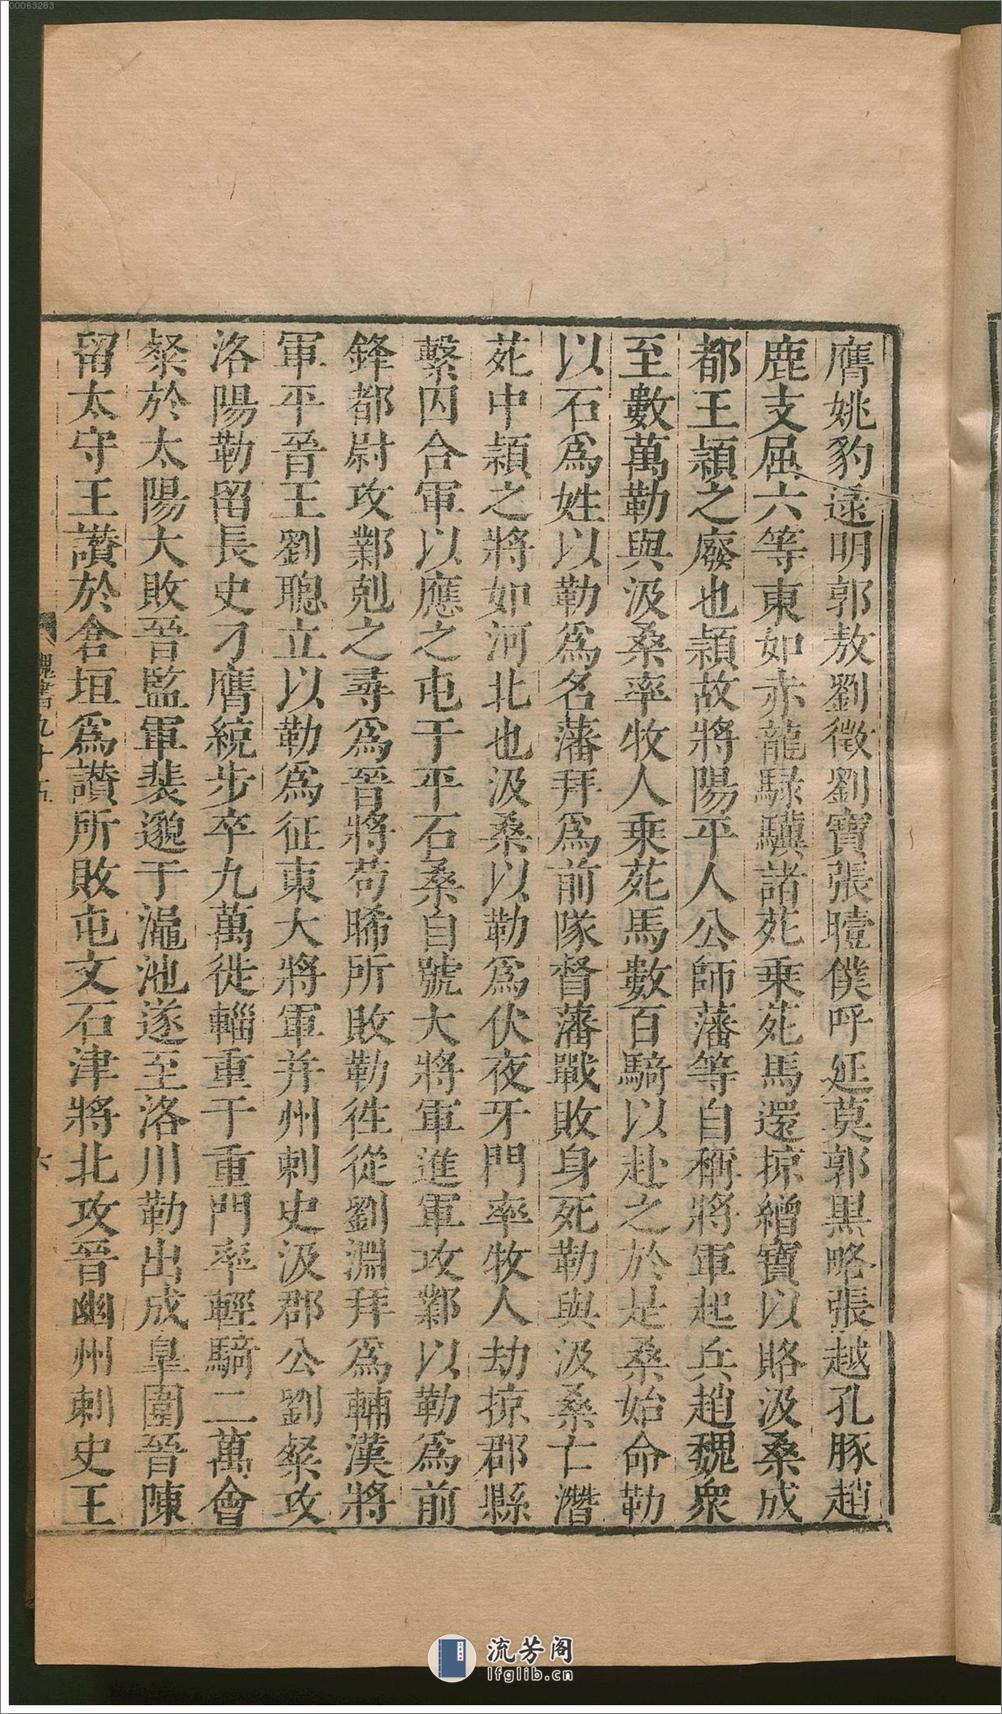 膺姚豹逯明郭敖劉徵劉寶張曀僕呼延莫郭黒略張越孔豚趙
鹿支屈六等東如赤龍騄驥諸苑乘苑馬還掠繒寶以賂汲桑成
都王頴之廢也頴故將陽平人公師藩等自稱將軍起兵趙魏衆
至數萬勒與汲桑率牧人乘苑馬數百騎以赴之於是桑始命勒
以石爲姓以勒爲名藩拜爲前隊督藩戰敗身死勒與汲桑亡潛
苑中頴之將如河北也汲桑以勒爲伏夜牙門率牧人劫掠郡縣
繫囚合軍以應之屯于平石桑自號大將軍進軍攻鄴以勒爲前
鋒都尉攻鄴剋之尋爲晉將苟晞所敗勒徃從劉淵拜爲輔漢將
軍平晉王劉聰立以勒爲征東大將軍并州刺史汲郡公劉粲攻
洛陽勒留長史刁膺統步卒九萬徙輜重于重門率輕騎二萬會
粲於太陽大敗晉監軍裴邈于澠池遂至洛川勒出成臯圍晉陳
留太守王讚於倉垣爲讚所敗屯文石津將北攻晉幽州刺史王
魏書九十五
六
00063263
流芳阁
lfglib.cn